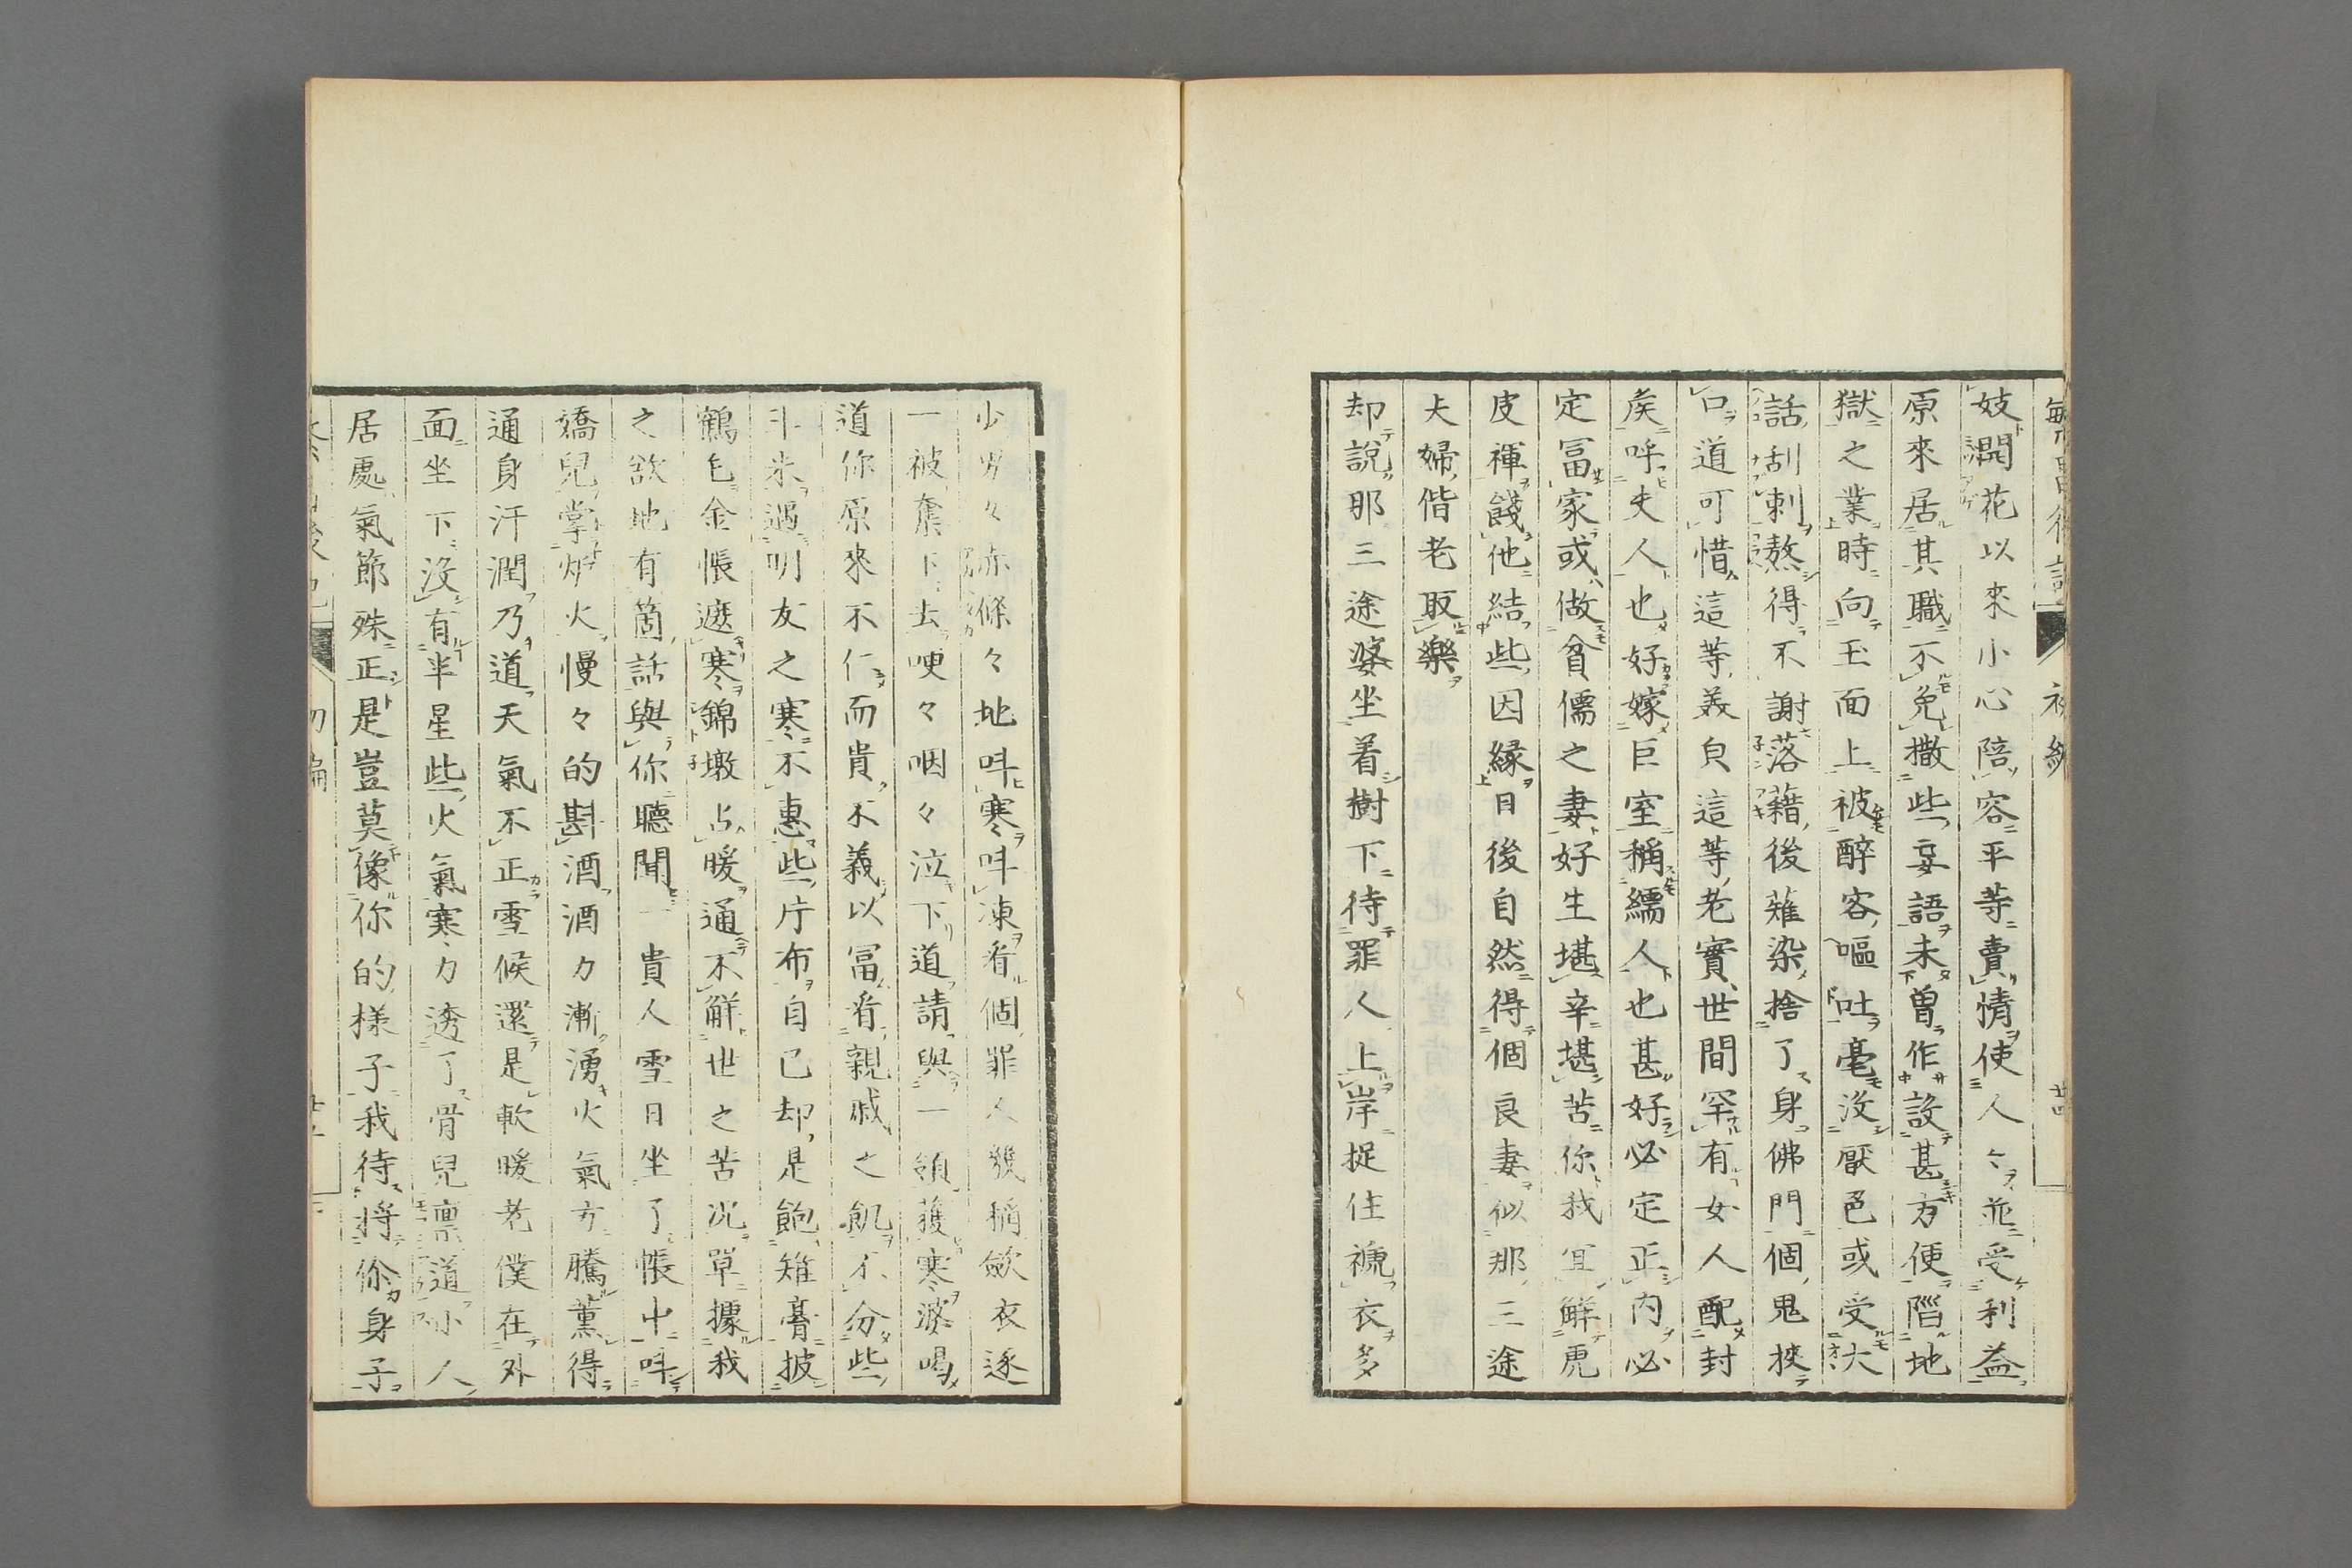 妓潤花以來小心陪容平等賣情使人々並受利益
原來居其職不免撒些妄語未曽作設甚方便陷地
獄之業時向玉面上被醉容嘔吐毫沒厭色或受大
話刮刺熬得不謝落藉後雖染捨了身佛門個鬼挍
口道可惜這等美皃這等老實世間罕有女人配封
矦呼夫人也好嫁巨室稱繻人也甚好必定正内必
定冨家或做貧儒之妻好生堪辛堪苦你我宜觧虎
皮褌餞他結些因縁日後自然得個良妻似那三途
夫婦偕老取樂
却說那三途婆坐着樹下待罪人上岸捉住褫衣多
少男々赤條々地呌寒呌凍看個罪人幾稱歛衣逐
一被奪下去哽々咽々泣下道請與一領護寒婆喝
道你原來不仁而貴不義以冨看親戚之飢不分些
斗米遇朋友之寒不惠些片布自己却是飽雉膏披
鶴氅金帳遮寒錦墩占暖通不觧世之苦况單據我
之欲地有箇話與你聽聞一貴人雪日坐了帳中呌
嬌兒掌炉火慢々的斟酒酒力漸湧火氣方騰薫得
通身汗潤乃道天氣不正雪候還是軟暖老僕在外
面坐下沒有半星些火氣寒力透了骨兒凛道小人
居處氣節殊正是豈莫像你的様子我待將你身子